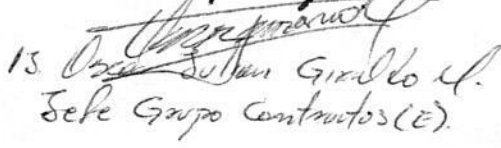 13. Oscar Julian Giraldo M.
Jefe Grupo Contratos (E).